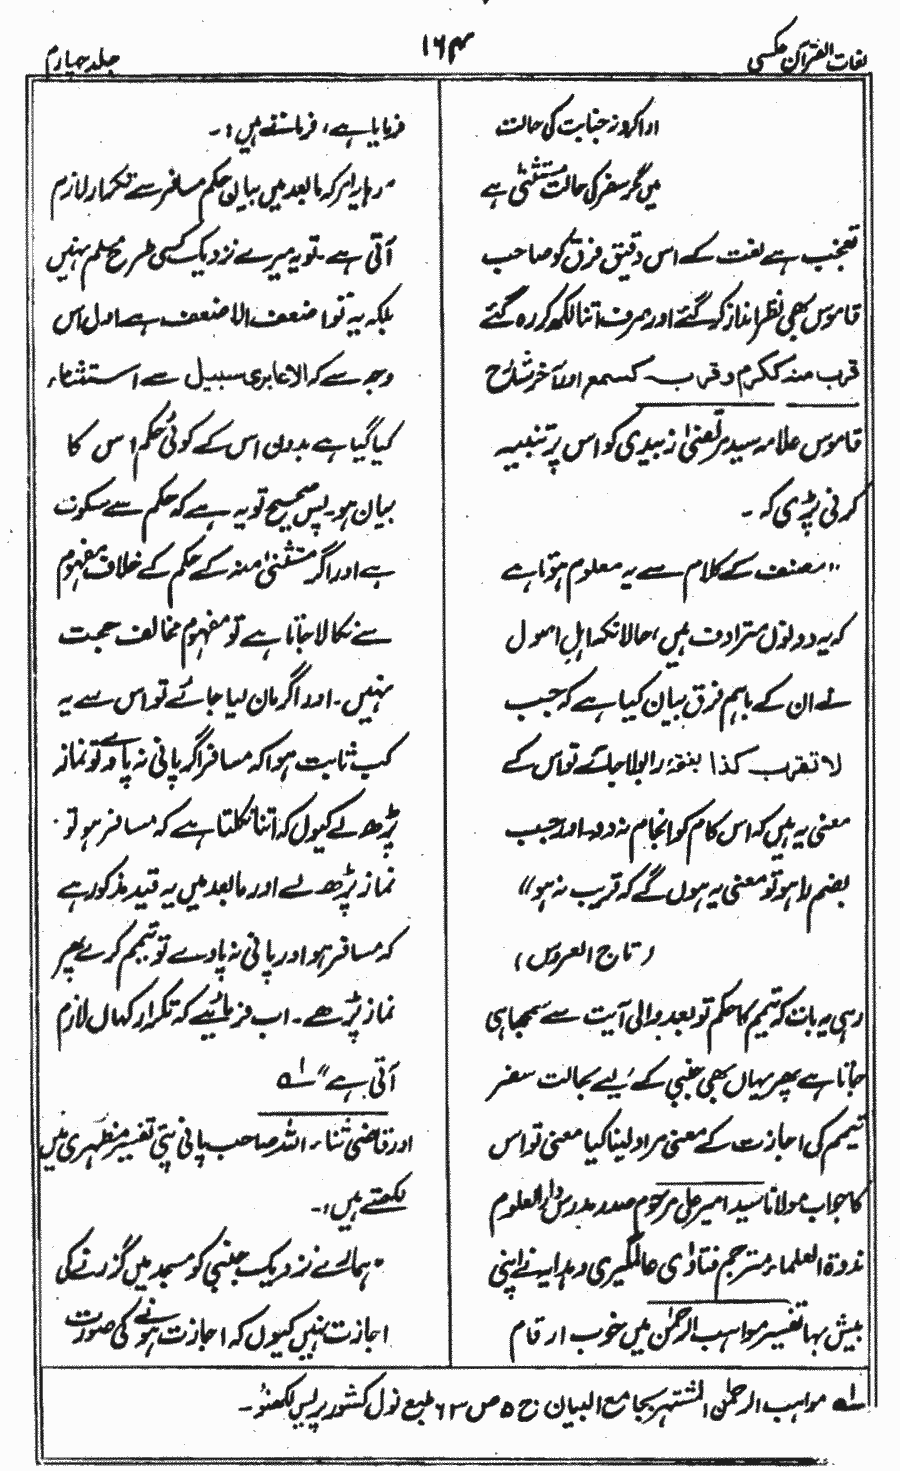 لغات القرآن عکسی
۱۶۴
جلد چہارم
اداکرو نہ جنابت کی حالت
میں مگر سفر کی حالت مستثنٰی ہے
تعجب ہے لغت کے اس دقیق فرق کو صاحب
قاموس بھی نظر انداز کر گئے اور صرف اتنا لکھ کر رہ گئے
قرب منہ ککرم و قرب کسمع اولاً خر شارح
قاموس علامہ سید مرتضیٰ زبیدی کو اس پر تنبیہ
کرنی پڑی کہ۔
"مصنف کے کلام سے یہ معلوم ہوتا ہے
کہ یہ دونوں مترادف ہیں، حالانکہ اہلِ اصول
نے ان کے باہم فرق بیان کیا ہے کہ جب
لا تقرب کذا بفتح را بولا جائے تو اس کے
معنی یہ ہیں کہ اس کام کو انجام نہ دو۔ اور جب
بضم را ہو تو معنی یہ ہوں گے کہ قریب نہ ہو"
(تاج العروس)
رہی یہ بات کہ تیمم کا حکم تو بعد والی آیت سے سمجھا ہی
جاتا ہے پھر یہاں بھی جنبی کے لیے بحالت سفر
تیمم کی اجازت کے معنی مراد لینا کیا معنی تو اس
کا جواب مولانا سید امیر علی مرحوم صدر مدرس دار العلوم
ندوۃ العلماء مترجم فتاوٰی عالمگیری و ہدایہ نے اپنی
بیش بہا تفسیر مواہب الرحمٰن میں خوب ارقام
فرمایا ہے، فرماتے ہیں:۔
"رہا یہ امر کہ مابعد میں بیان حکم مسافر سے تکرار لازم
آتی ہے۔ تو یہ میرے نزدیک کسی طرح مسلم نہیں
بلکہ یہ تو اضعف الاضعف ہے اول اس
وجہ سے کہ الا عابری سبیل سے استثناء
کیا گیا ہے بدون اس کے کوئی حکم اس کا
بیان ہو۔ پس صحیح تو یہ ہے کہ حکم سے سکوت
ہے اور اگر مستثنیٰ منہ کے حکم کے خلاف مفہوم
سے نکالا جاتا ہے تو مفہوم مخالف حجت
نہیں۔ اور اگر مان لیا جائے تو اس سے یہ
کب ثابت ہوا کہ مسافر اگر پانی نہ پاوے تو نماز
پڑھ لے کیوں کہ اتنا نکلتا ہے کہ مسافر ہو تو
نماز پڑھ لے اور مابعد میں یہ قید مذکور ہے
کہ مسافر ہو اور پانی نہ پاوے تو تیمم کرے پھر
نماز پڑھے۔ اب فرمائیے کہ تکرار کہاں لازم
آتی ہے" ۱ے
اور قاضی ثناء اللہ صاحب پانی پتی تفسیر مظہری میں
لکھتے ہیں:۔
"ہمارے نزدیک جنبی کو مسجد میں گزرنے کی
اجازت نہیں کیوں کہ اجازت ہونے کی صورت
۱ے مواہب الرحمٰن المشتہر بجامع البیان ج ۵ ص ۶۳ طبع نول کشور پریس لکھنؤ۔